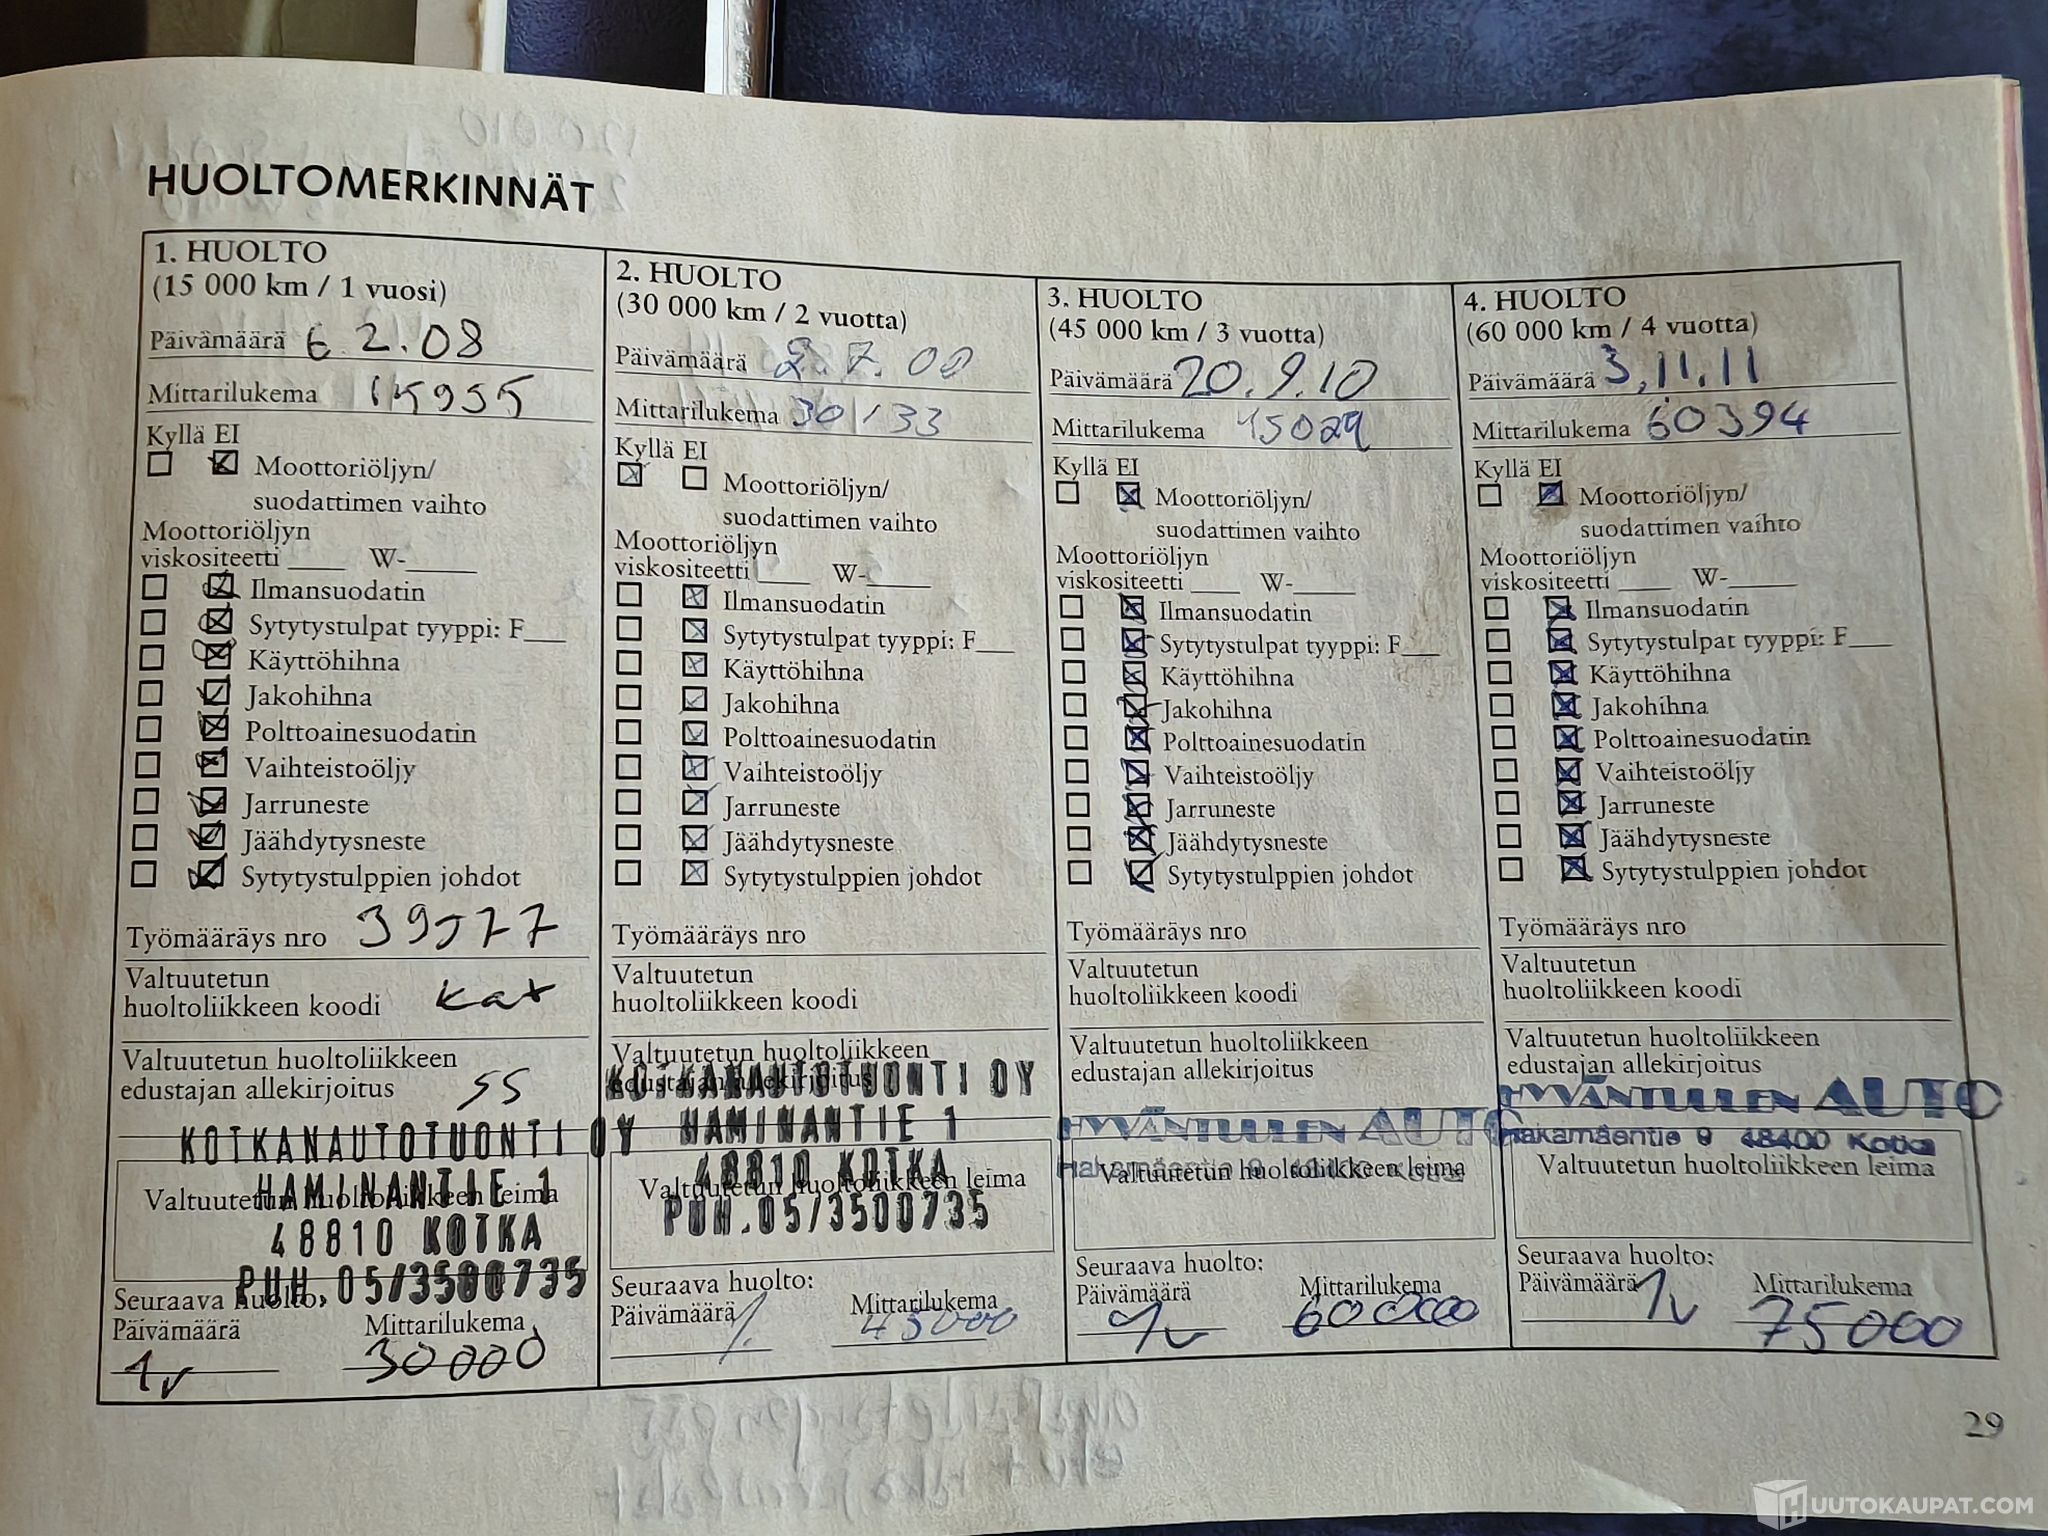 HUOLTOMERKINNÄT
1. HUOLTO
(15 000 km / 1 vuosi)
Päivämäärä 6.2.08
Mittarilukema 15955
Kyllä EI
Moottoriöljyn/
suodattimen vaihto
Moottoriöljyn
viskositeetti ____ W-____
Ilmansuodatin
Sytytystulpat tyyppi: F___
Käyttöhihna
Jakohihna
Polttoainesuodatin
Vaihteistoöljy
Jarruneste
Jäähdytysneste
Sytytystulppien johdot
Työmääräys nro
Valtuutetun
huoltoliikkeen koodi
Valtuutetun huoltoliikkeen
edustajan allekirjoitus SS
KOTKANAUTOTUONTI OY
HAMINANTIE 1
Valtuutetun huoltoliikkeen leima
48810 KOTKA
PUH.05/3500735
Seuraava huolto:
Päivämäärä Mittarilukema
1v 30000
2. HUOLTO
(30 000 km / 2 vuotta)
Päivämäärä
Mittarilukema 30133
Kyllä EI
Moottoriöljyn/
suodattimen vaihto
Moottoriöljyn
viskositeetti ____ W-____
Ilmansuodatin
Sytytystulpat tyyppi: F___
Käyttöhihna
Jakohihna
Polttoainesuodatin
Vaihteistoöljy
Jarruneste
Jäähdytysneste
Sytytystulppien johdot
Työmääräys nro
Valtuutetun
huoltoliikkeen koodi
Valtuutetun huoltoliikkeen
edustajan allekirjoitus
KOTKANAUTOTUONTI OY
HAMINANTIE 1
48810 KOTKA
Valtuutetun huoltoliikkeen leima
PUH.05/3500735
Seuraava huolto:
Päivämäärä Mittarilukema
45000
3. HUOLTO
(45 000 km / 3 vuotta)
Päivämäärä 20.9.10
Mittarilukema 45029
Kyllä EI
Moottoriöljyn/
suodattimen vaihto
Moottoriöljyn
viskositeetti ____ W-____
Ilmansuodatin
Sytytystulpat tyyppi: F___
Käyttöhihna
Jakohihna
Polttoainesuodatin
Vaihteistoöljy
Jarruneste
Jäähdytysneste
Sytytystulppien johdot
Työmääräys nro
Valtuutetun
huoltoliikkeen koodi
Valtuutetun huoltoliikkeen
edustajan allekirjoitus
HYVÄNTUULEN AUTO
Hakamäentie 9 48400 Kotka
Valtuutetun huoltoliikkeen leima
Seuraava huolto:
Päivämäärä Mittarilukema
1v
4. HUOLTO
(60 000 km / 4 vuotta)
Päivämäärä 3.11.11
Mittarilukema 60394
Kyllä EI
Moottoriöljyn/
suodattimen vaihto
Moottoriöljyn
viskositeetti ____ W-____
Ilmansuodatin
Sytytystulpat tyyppi: F___
Käyttöhihna
Jakohihna
Polttoainesuodatin
Vaihteistoöljy
Jarruneste
Jäähdytysneste
Sytytystulppien johdot
Työmääräys nro
Valtuutetun
huoltoliikkeen koodi
Valtuutetun huoltoliikkeen
edustajan allekirjoitus
HYVÄNTUULEN AUTO
Hakamäentie 9 48400 Kotka
Valtuutetun huoltoliikkeen leima
Seuraava huolto:
Päivämäärä Mittarilukema
1v 75000
29
HUUTOKAUPAT.COM